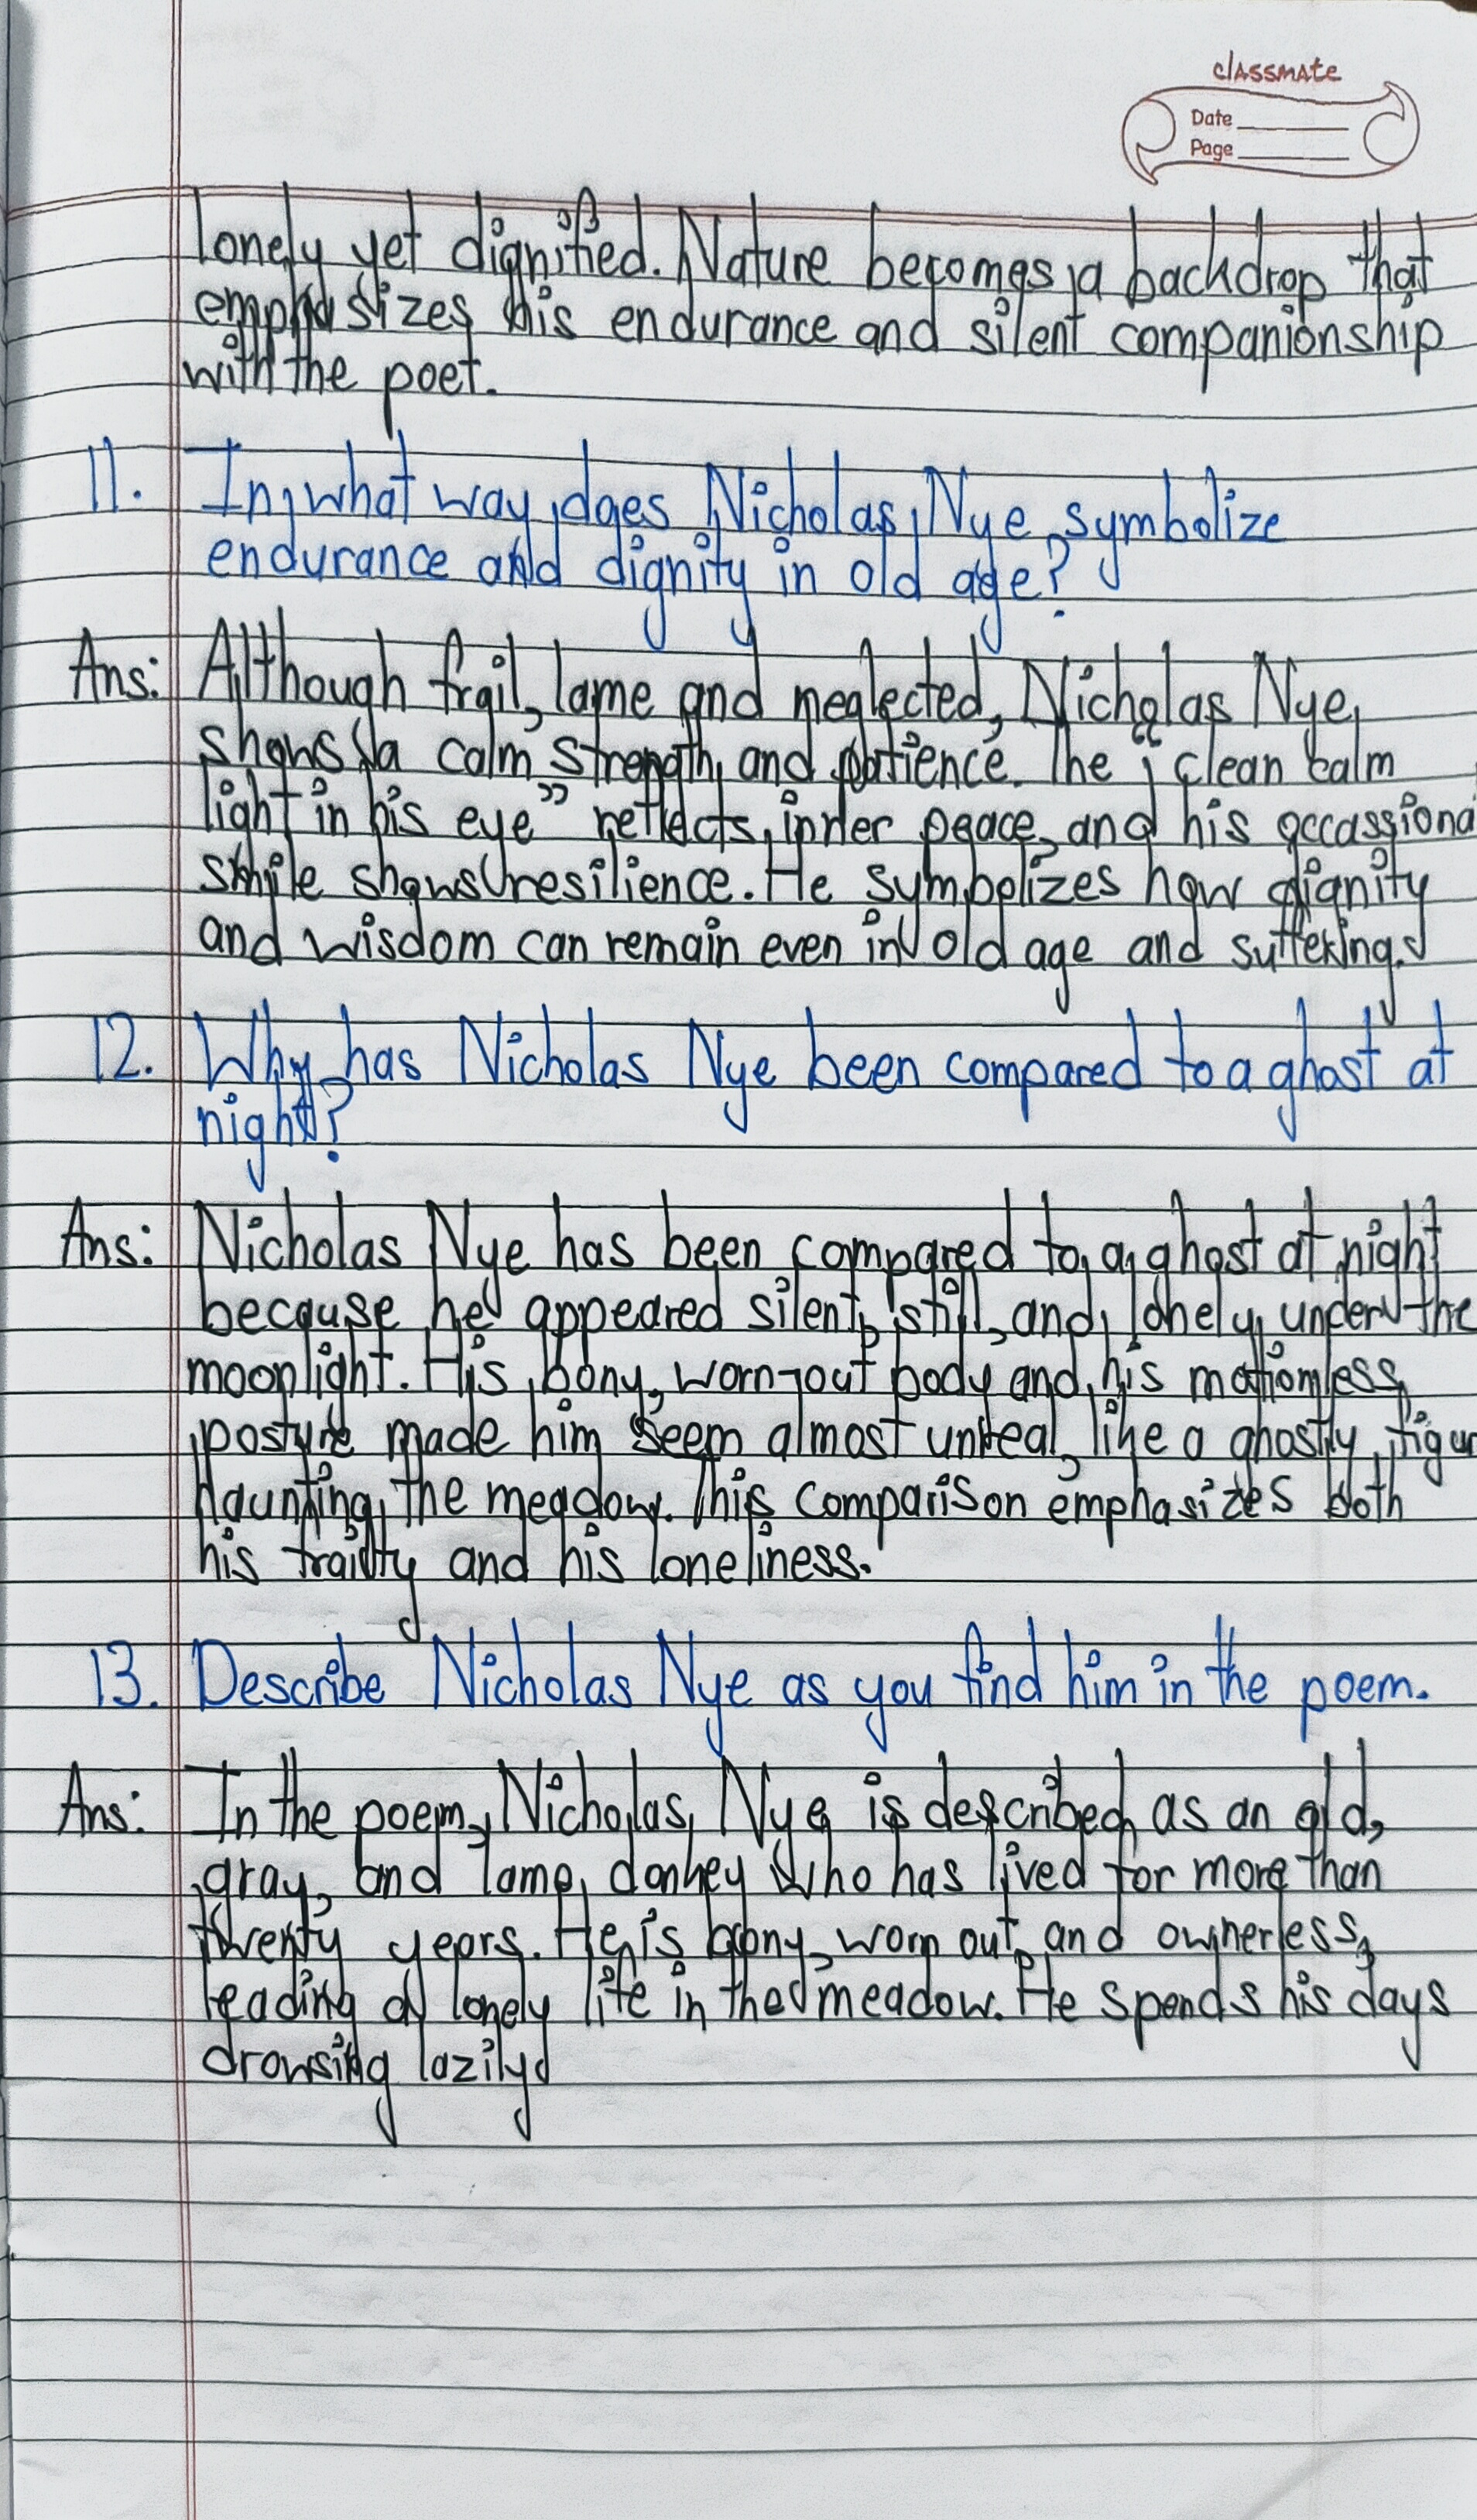 classmate
Date
Page
lonely yet dignified. Nature becomes a backdrop that
emphasizes his endurance and silent companionship
with the poet.
11. In what way does Nicholas Nye symbolize
endurance and dignity in old age?
Ans: Although frail, lame and neglected, Nicholas Nye
shows a calm strength and patience. The “clean calm
light in his eye” reflects inner peace, and his occassiona
smile shows resilience. He symbolizes how dignity
and wisdom can remain even in old age and suffering.
12. Why has Nicholas Nye been compared to a ghost at
night?
Ans: Nicholas Nye has been compared to a ghost at night
because he appeared silent, still, and lonely under the
moonlight. His bony, worn-out body and his motionless
posture made him seem almost unreal, like a ghostly figur
haunting the meadow. This comparison emphasizes both
his frailty and his loneliness.
13. Describe Nicholas Nye as you find him in the poem.
Ans: In the poem, Nicholas Nye is described as an old,
gray, and lame donkey who has lived for more than
twenty years. He is bony, worn out, and ownerless,
leading a lonely life in the meadow. He spends his days
drowsing lazily